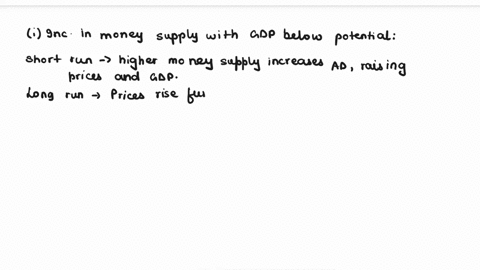 (i) Inc. In money supply with GDP below potential:
Short run -> higher money supply increases AD, raising
prices and GDP.
Long run -> Prices rise